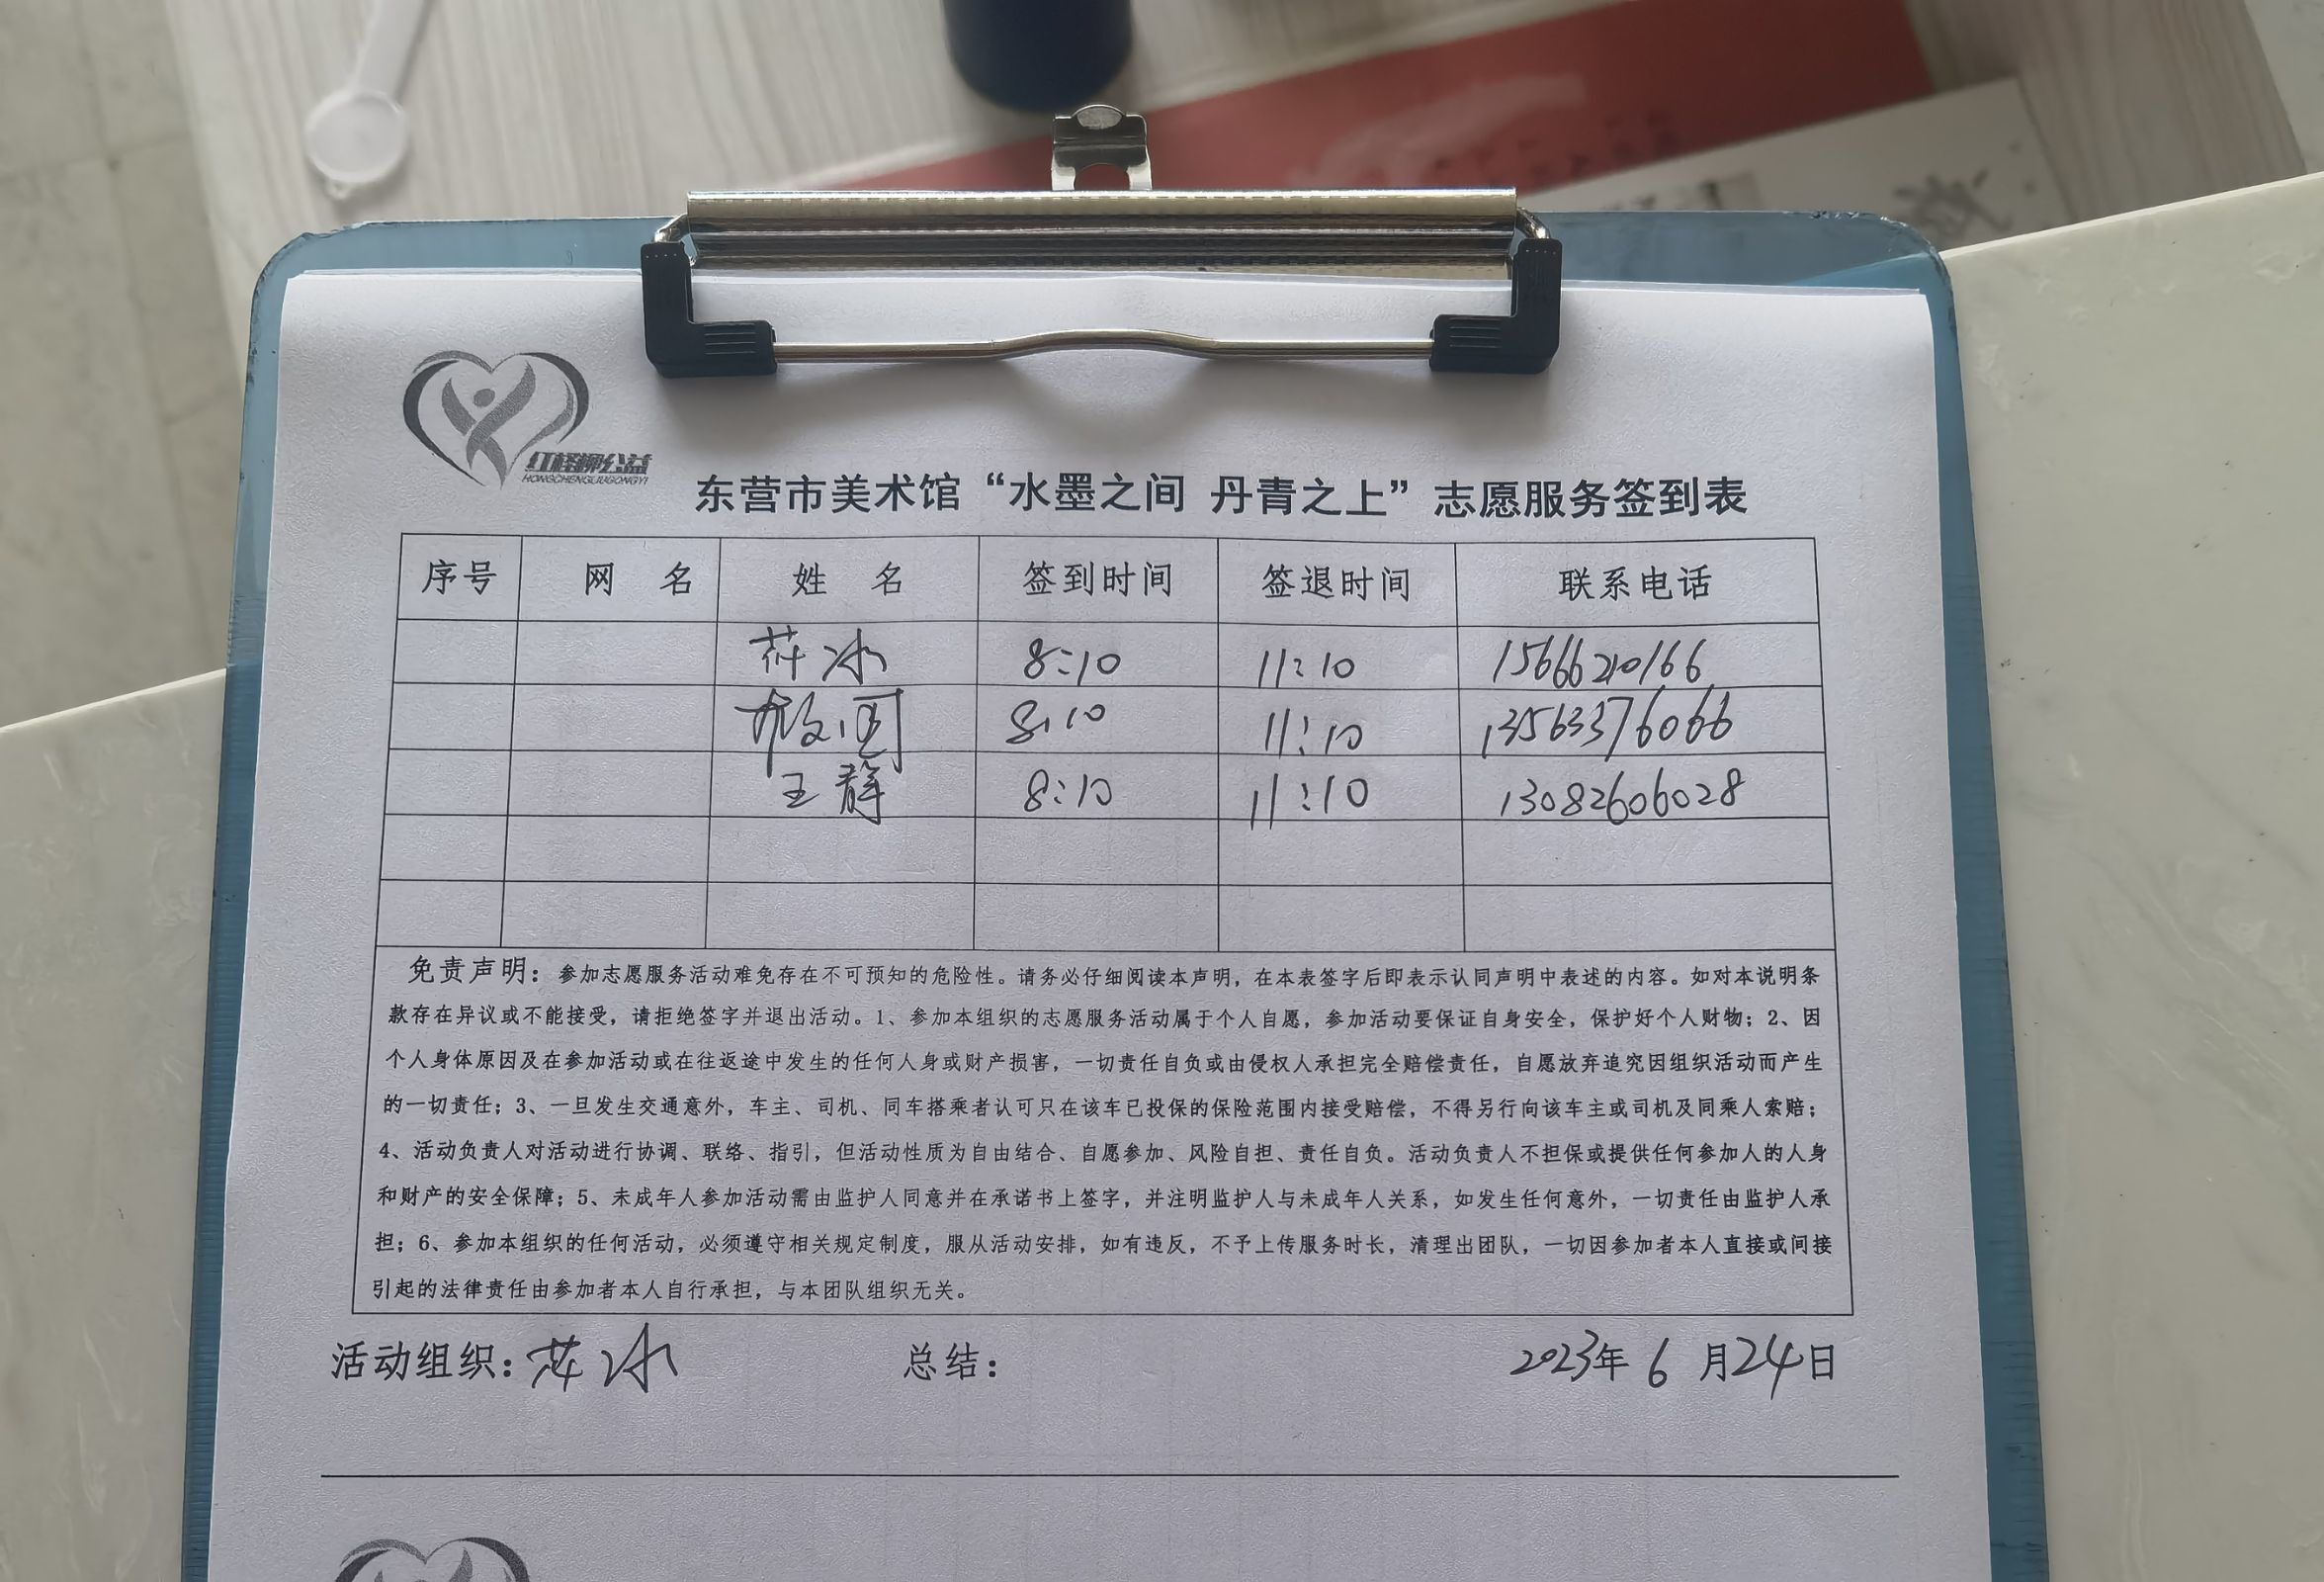 红柽柳公益
HONGCHENGLIUGONGYI
东营市美术馆“水墨之间 丹青之上”志愿服务签到表
序号 网 名 姓 名 签到时间 签退时间 联系电话
冰 8:10 11:10 15666210166
8:10 11:10 13563376066
王静 8:10 11:10 13082606028
免责声明：参加志愿服务活动难免存在不可预知的危险性。请务必仔细阅读本声明，在本表签字后即表示认同声明中表述的内容。如对本说明条
款存在异议或不能接受，请拒绝签字并退出活动。1、参加本组织的志愿服务活动属于个人自愿，参加活动要保证自身安全，保护好个人财物；2、因
个人身体原因及在参加活动或在往返途中发生的任何人身或财产损害，一切责任自负或由侵权人承担完全赔偿责任，自愿放弃追究因组织活动而产生
的一切责任；3、一旦发生交通意外，车主、司机、同车搭乘者认可只在该车已投保的保险范围内接受赔偿，不得另行向该车主或司机及同乘人索赔；
4、活动负责人对活动进行协调、联络、指引，但活动性质为自由结合、自愿参加、风险自担、责任自负。活动负责人不担保或提供任何参加人的人身
和财产的安全保障；5、未成年人参加活动需由监护人同意并在承诺书上签字，并注明监护人与未成年人关系，如发生任何意外，一切责任由监护人承
担；6、参加本组织的任何活动，必须遵守相关规定制度，服从活动安排，如有违反，不予上传服务时长，清理出团队，一切因参加者本人直接或间接
引起的法律责任由参加者本人自行承担，与本团队组织无关。
活动组织：冰 总结： 2023年 6 月24日